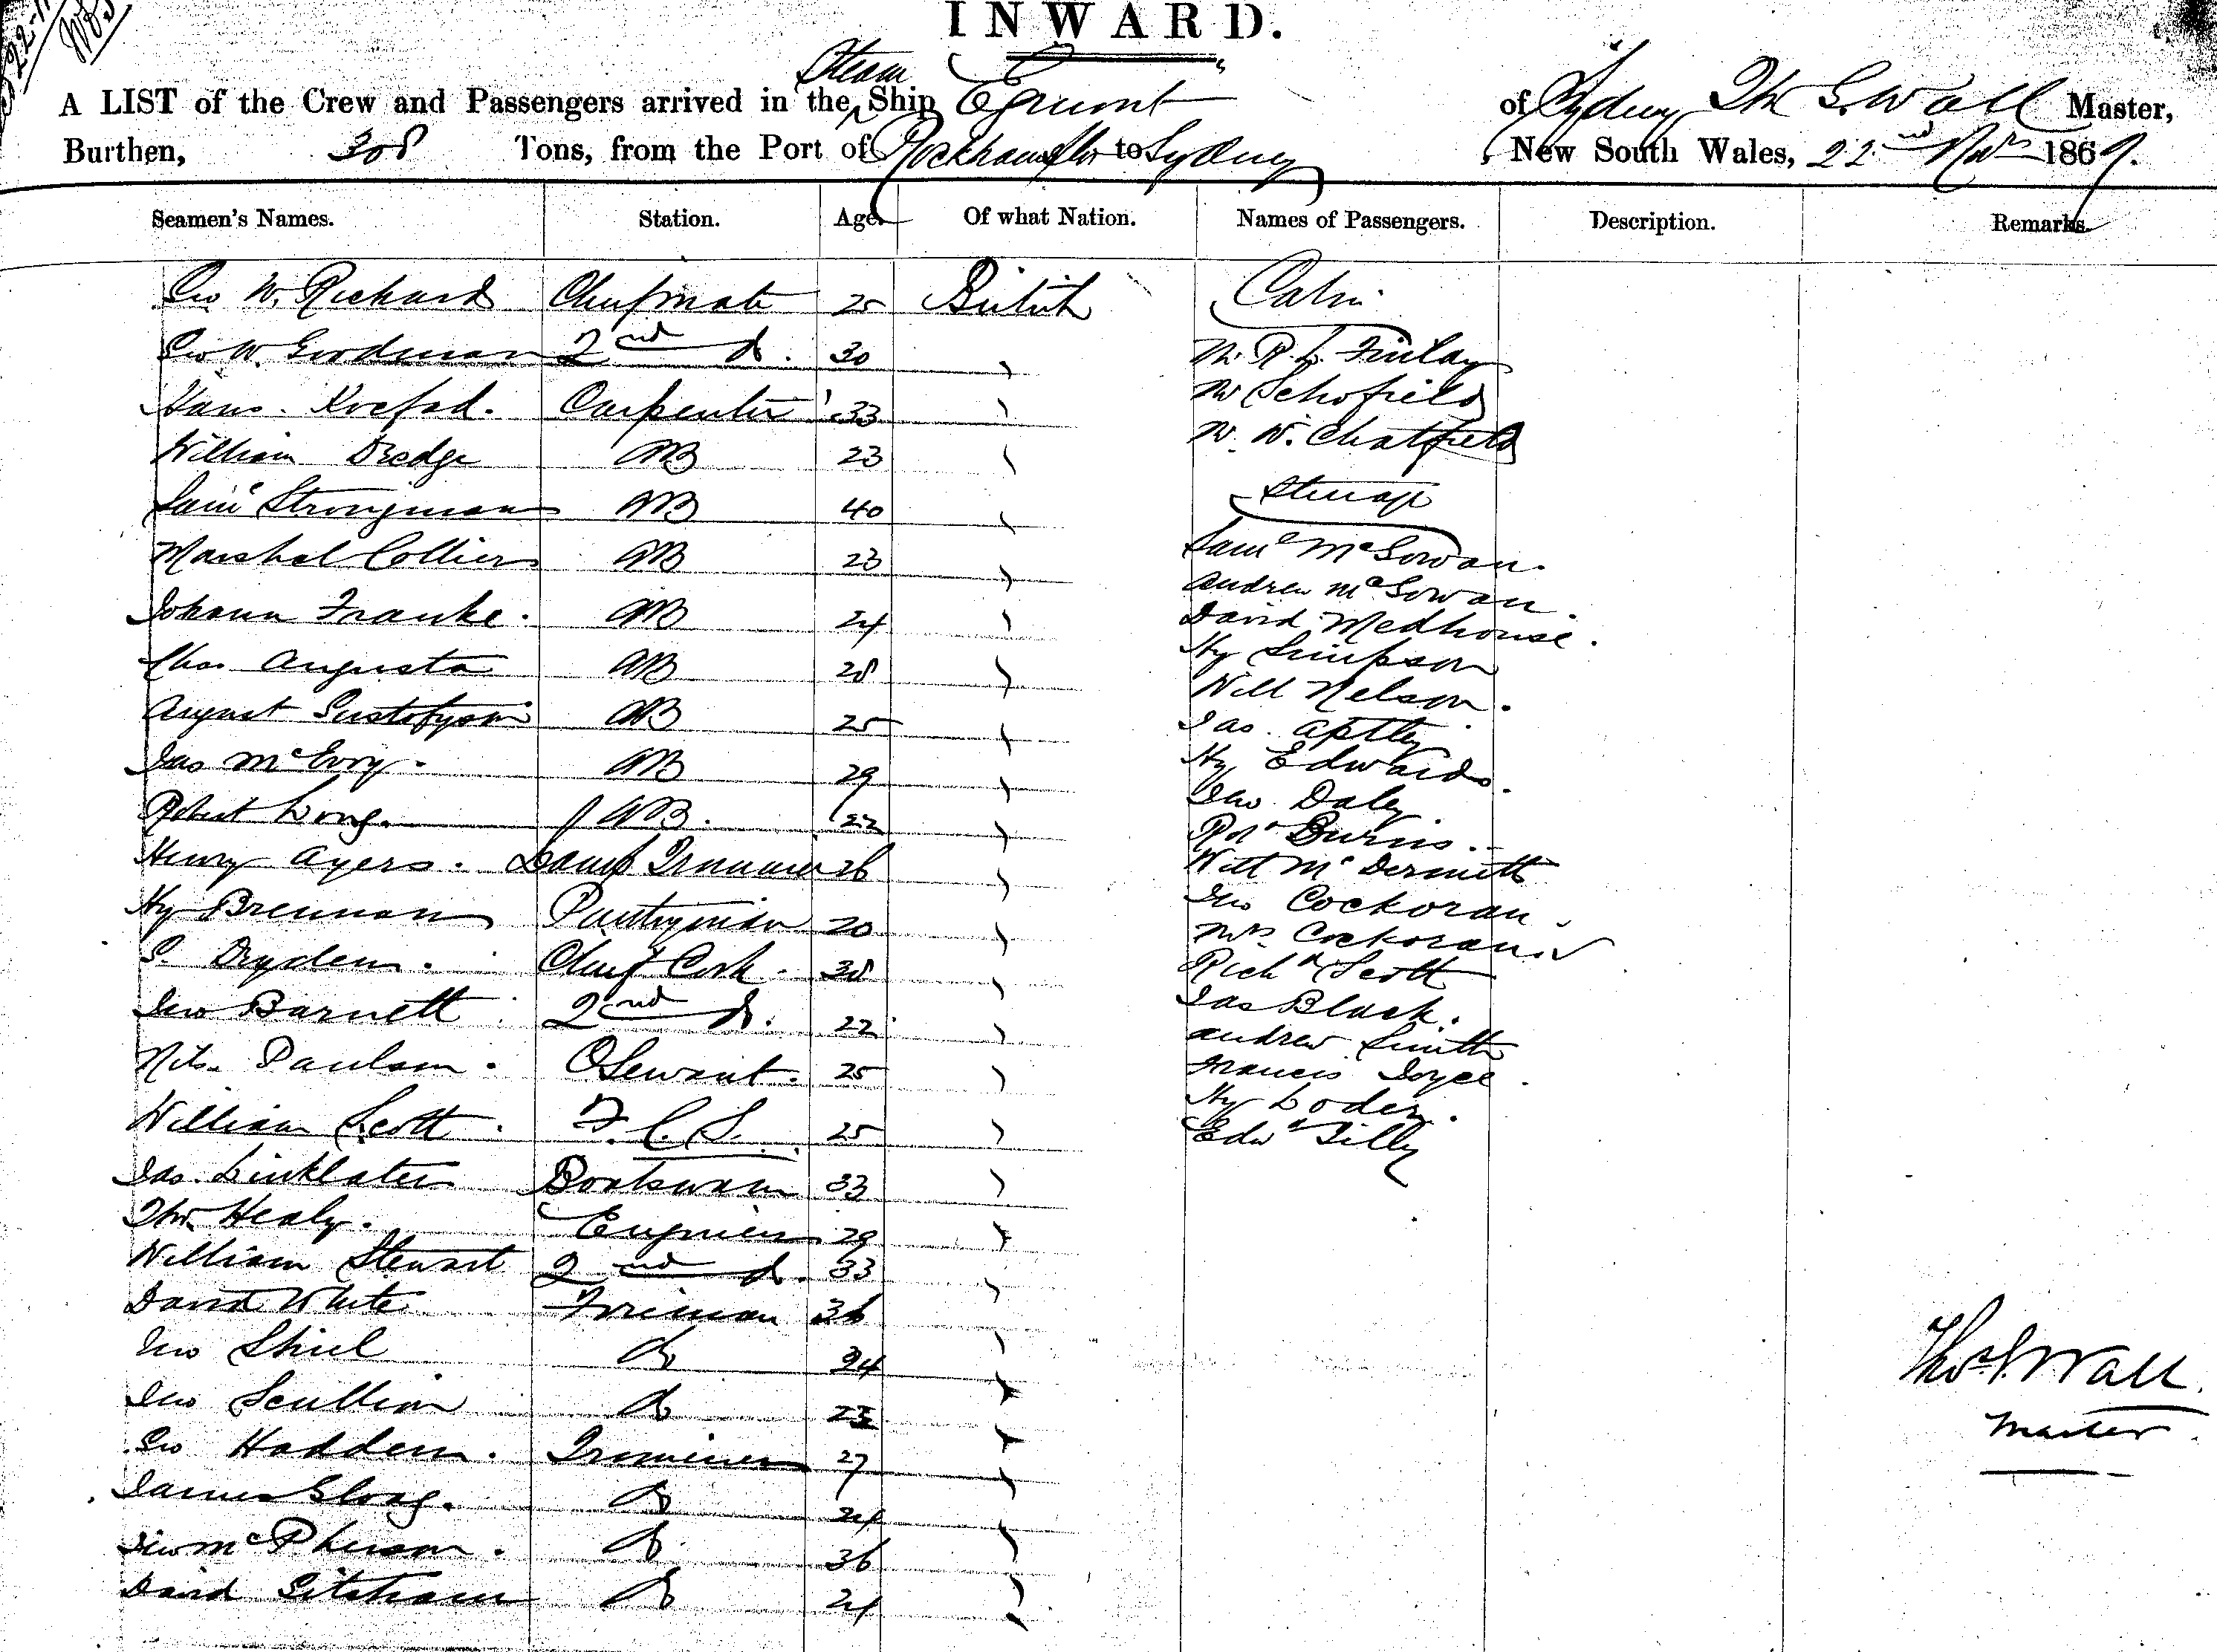 INWARD.
A LIST of the Crew and Passengers arrived in the Steam Ship Egmont of Sydney Thos S. Wall Master,
Burthen, 308 Tons, from the Port of Rockhampton to Sydney, New South Wales, 22nd Novr 1869.
Seamen's Names. Station. Age. Of what Nation. Names of Passengers. Description. Remarks.
Geo W. Richards Chief mate 25 British Cabin
Geo W. Goodman 2nd do. 30
Mr. R. L. Finlay
Hans Carpenter 33
Mr Schofield
William Dredge AB 23
Mr. W. Chatfield
Saml Strongman AB 40
Steerage
Marshal Collier AB 23
Saml McGowan.
Andrew McGowan.
Johann Franke. AB 24
David Medhouse.
Hy Simpson
Chas Augusta AB 28
Will Nelson.
August AB 25
Jas. Aptley
Jas McEvoy. AB 29
Hy Edwards.
Robert Long. AB. 22
Jno Daley
Robt Burns.
Henry Ayers. Lamp Trimmer 26
Will McDermott
Jno Cockoran.
Hy Brennan Pantryman 20
Mrs. Cockoran.
S. Dryden. Chief Cook. 38
Richd Scott
Jas Black.
Jno Barnett 2nd do. 22
Andrew Smith
Nils Paulsen. 25
Francis Joyce.
Hy Loder.
William Scott. F. C. S. 25
Edwd Tilly
Jas. Linklater Boatswain 33
Thos. Healy. Engineer 29
William Stewart 2nd do. 33
David White Fireman 36
Jno Shiel do 34
Thos S. Wall
Jno Scullion do 23
Master
Geo Hadden. Trimmer 27
James do 24
Jno McPherson. do 36
David do 24